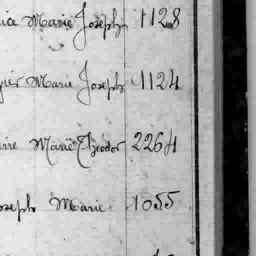 Marie Joseph 1128
Marie Joseph 1124
Marie Theodor 2264
Joseph Marie 1055